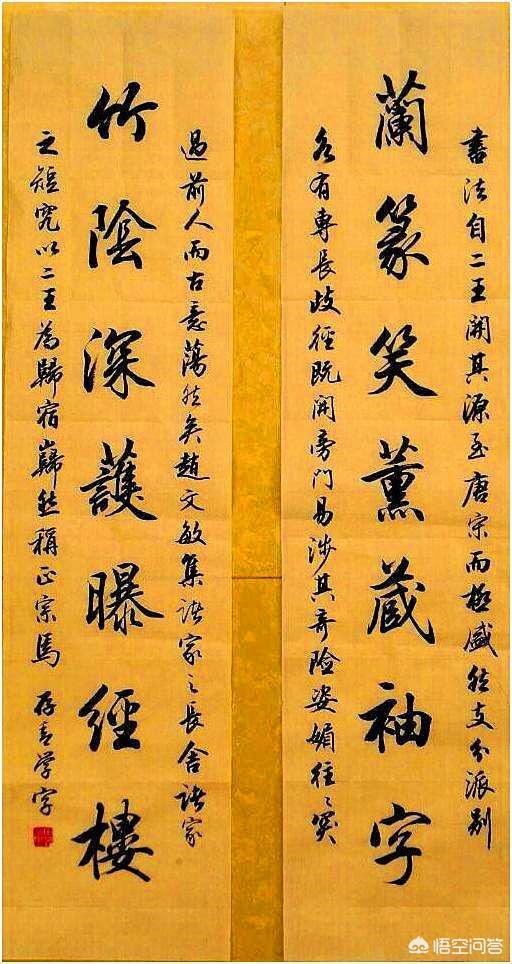 書法自二王開其源至唐宋而極盛然支分派別
蘭篆笑薰藏袖字
各有專長歧徑既開旁門易涉其奇險姿媚往〻突
過前人而古意蕩然矣趙文敏集諸家之長舍諸家
竹陰深護曝經樓
之短究以二王為歸宿巋然稱正宗焉 存青學字
悟空问答